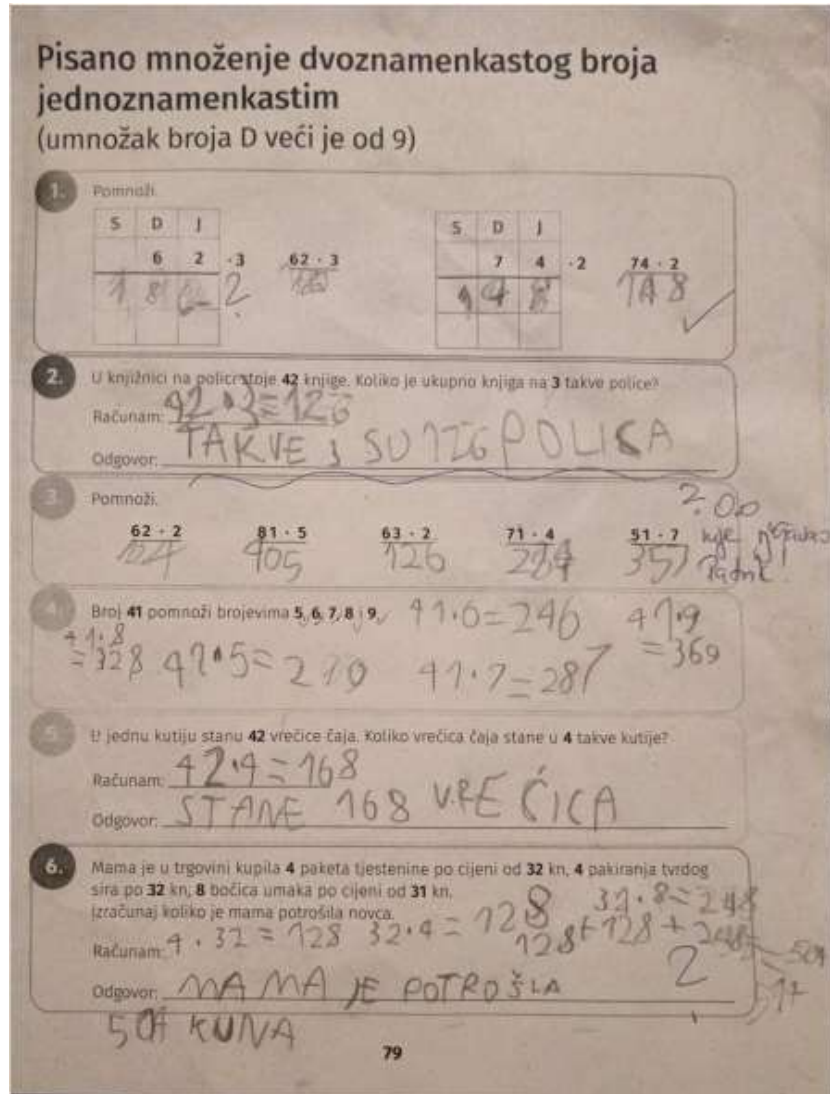 Pisano množenje dvoznamenkastog broja
jednoznamenkastim
(umnožak broja D veći je od 9)
1. Pomnoži.
S D J S D J
6 2 · 3 62 · 3 7 4 · 2 74 · 2
1 8 ? 1 4 8 148
2. U knjižnici na polici stoje 42 knjige. Koliko je ukupno knjiga na 3 takve police?
Računam: 42 · 3 = 126
Odgovor: TAKVE 3 SU 126 POLICA
3. Pomnoži.
62 · 2 81 · 5 63 · 2 71 · 4 51 · 7
124 405 126 284 357
4. Broj 41 pomnoži brojevima 5, 6, 7, 8 i 9. 41·6=246 41·9
41·8
=328 41·5=210 41·7=287 =369
5. U jednu kutiju stanu 42 vrećice čaja. Koliko vrećica čaja stane u 4 takve kutije?
Računam: 42·4=168
Odgovor: STANE 168 VREĆICA
6. Mama je u trgovini kupila 4 paketa tjestenine po cijeni od 32 kn, 4 pakiranja tvrdog
sira po 32 kn, 8 bočica umaka po cijeni od 31 kn.
Izračunaj koliko je mama potrošila novca. 31·8=248
Računam: 4 · 32 = 128 32·4 = 128 128+128+248= 504
Odgovor: MAMA JE POTROŠLA
504 KUNA
79